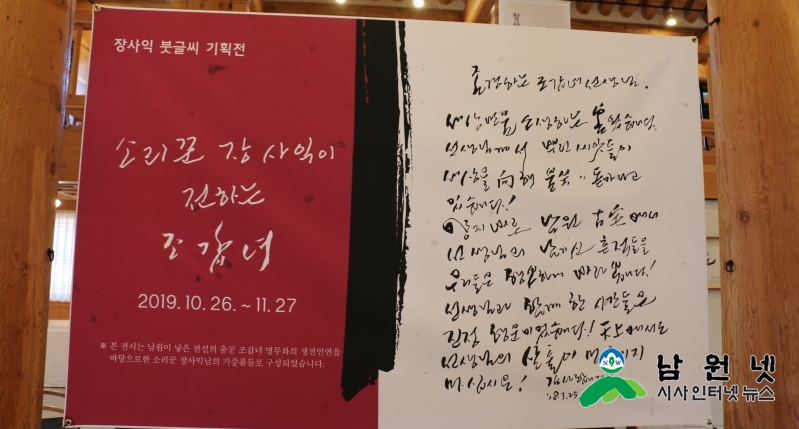 장사익 붓글씨 기획전
소리꾼 장사익이
전하는
조갑녀
2019.10.26. ~ 11.27
※ 본 전시는 남원이 낳은 전설의 춤꾼 조갑녀 명무와의 생전인연을
바탕으로한 소리꾼 장사익님의 기증품들로 구성되었습니다.
존경하는 조갑녀 선생님.
세상만물 소생하는 봄 왔습니다.
선생님께서 뿌린 씨앗들이
세상을 向해
있습니다!
남원 古室에서
선생님의 남기신 흔적들을
우리들은 바라봅니다!
선생님과 함께 한 시간들은
진정 이었습니다! 天上에서도
선생님의
마십시요!
'18.3.25
남원넷
시사인터넷뉴스
NOW